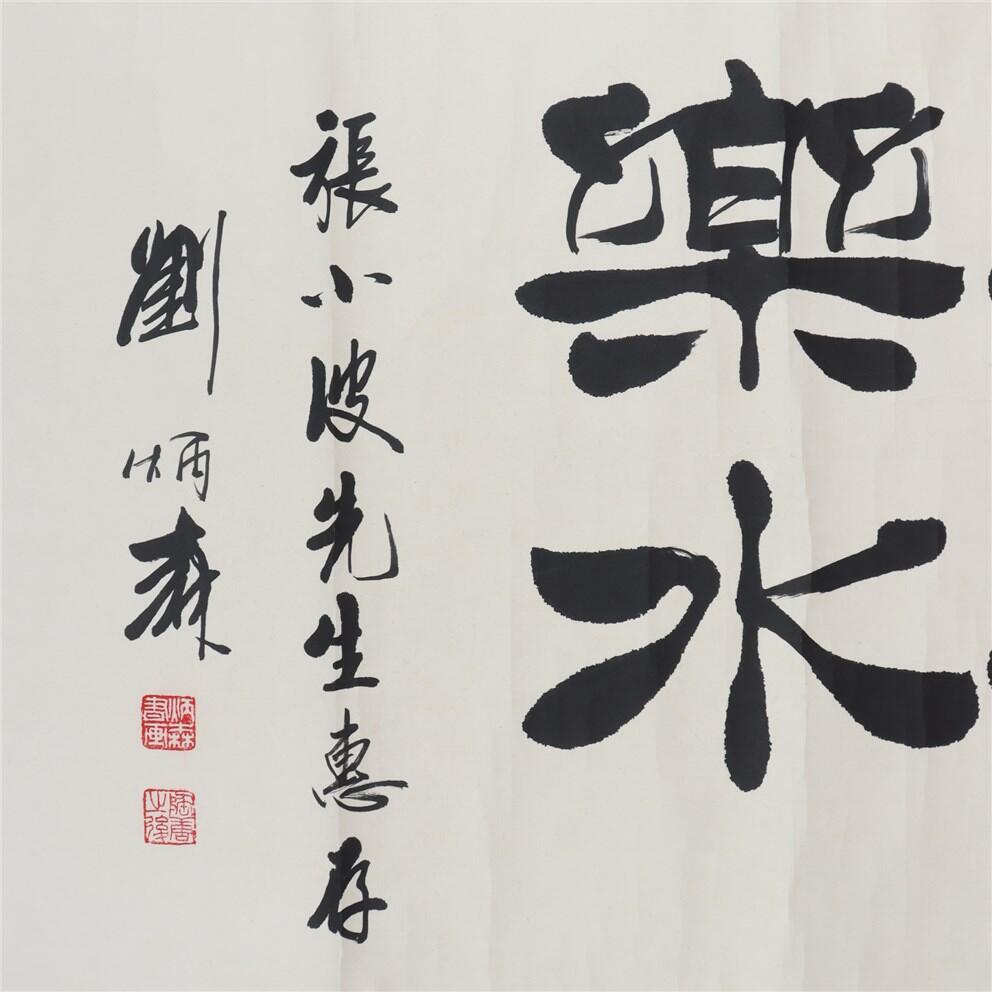 樂水
張小波先生惠存
劉炳森
炳森書畫
陶唐之後